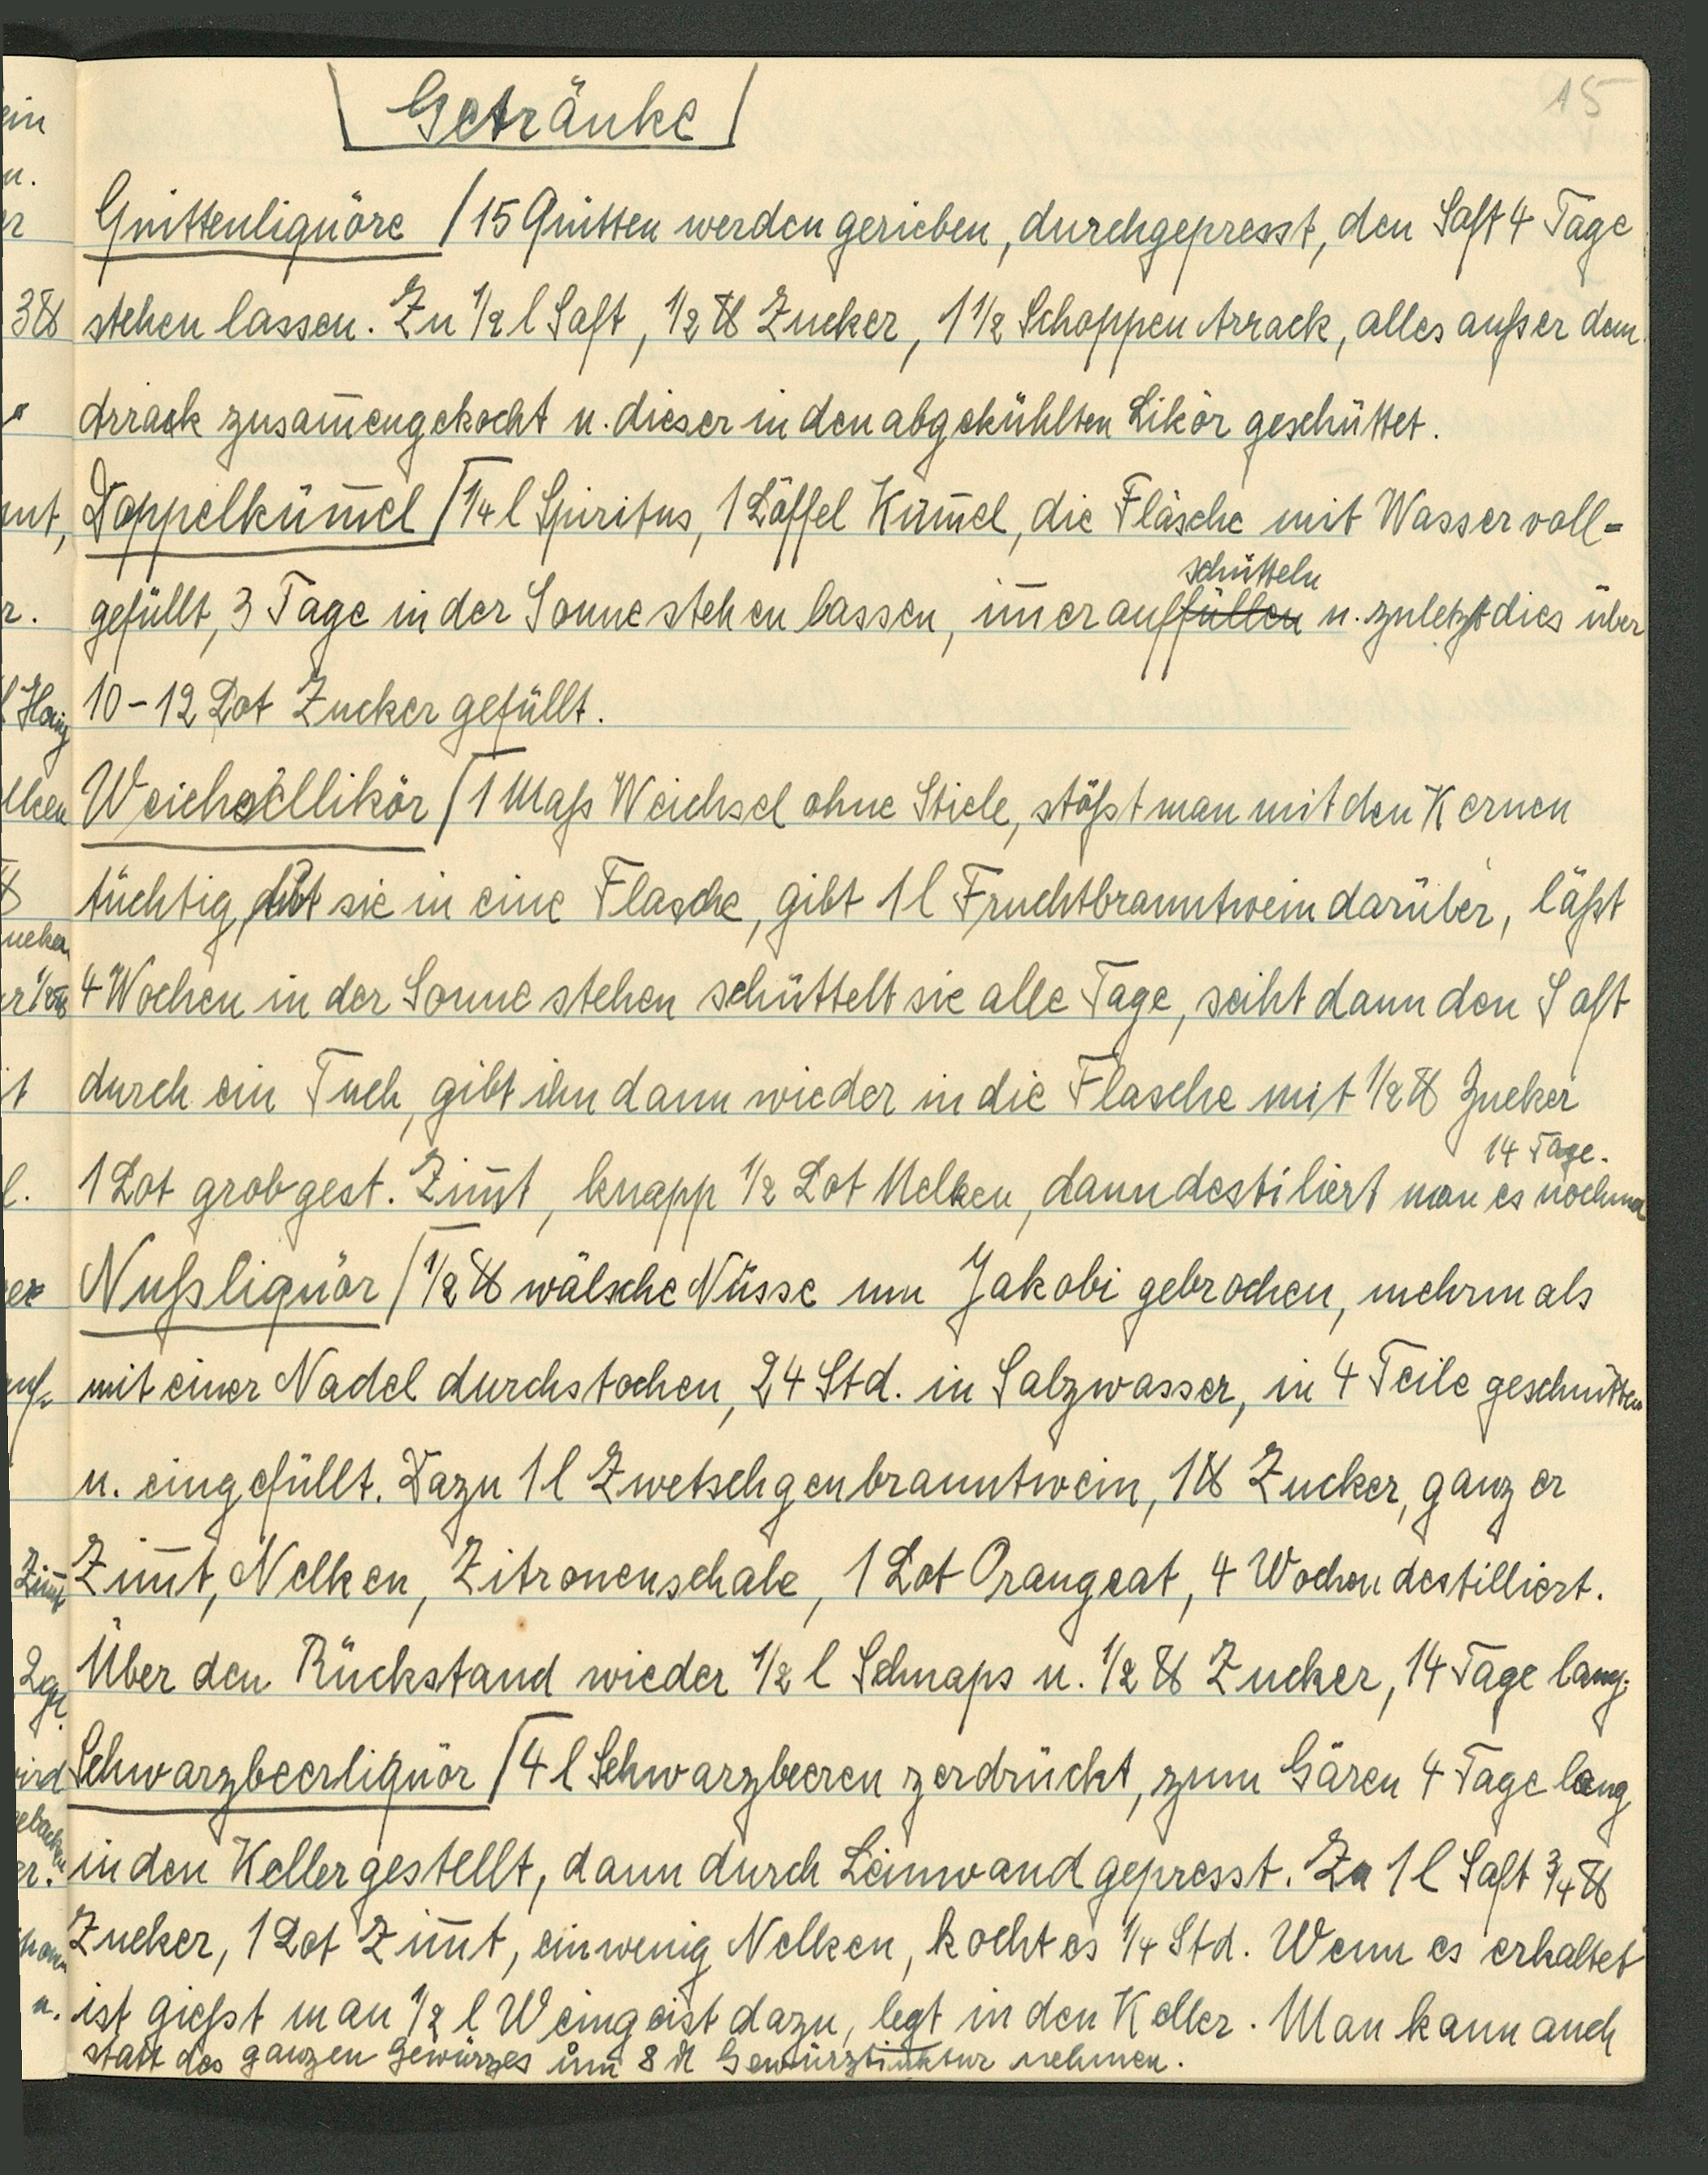 15
Getränke
Quittenliquöre / 15 Quitten werden gerieben, durchgepresst, den Saft 4 Tage
stehen lassen. Zu 1/2 l Saft, 1/2 ℔ Zucker, 1 1/2 Schoppen Arrack, alles außer dem
Arrack zusam̅engekocht u. dieser in den abgekühlten Likör geschüttet.
Doppelküm̅el / 1/4 l Spiritus, 1 Löffel Küm̅el, die Flasche mit Wasser voll=
schütteln
gefüllt, 3 Tage in der Sonne stehen lassen, im̅er auffüllen u. zuletzt dies über
10-12 Lot Zucker gefüllt.
Weichsellikör / 1 Maß Weichsel ohne Stiele, stößt man mit den Kernen
tüchtig, sie in eine Flasche, gibt 1 l Fruchtbranntwein darüber, läßt
4 Wochen in der Sonne stehen schüttelt sie alle Tage, seiht dann den Saft
durch ein Tuch, gibt ihn dann wieder in die Flasche mit 1/2 ℔ Zucker
14 Tage.
1 Lot grobgest. Zim̅t, knapp 1/2 Lot Nelken, dann destiliert man es nochmal
Nußliquör / 1/2 ℔ wälsche Nüsse um Jakobi gebrochen, mehrmals
mit einer Nadel durchstochen, 24 Std. in Salzwasser, in 4 Teile geschnitten
u. eingefüllt. Dazu 1 l Zwetschgenbranntwein, 1 ℔ Zucker, ganzer
Zim̅t, Nelken, Zitronenschale, 1 Lot Orangeat, 4 Wochen destilliert.
Über den Rückstand wieder 1/2 l Schnaps u. 1/2 ℔ Zucker, 14 Tage lang.
Schwarzbeerliquör / 4 l Schwarzbeeren zerdrückt, zum Gären 4 Tage lang
in den Keller gestellt, dann durch Leinwand gepresst. Zu 1 l Saft 3/4 ℔
Zucker, 1 Lot Zim̅t, ein wenig Nelken, kocht es 1/4 Std. Wenn es erkaltet
ist gießt man 1/2 l Weingeist dazu, legt in den Keller. Man kann auch
statt des ganzen Gewürzes um 8 Gewürztinktur nehmen.